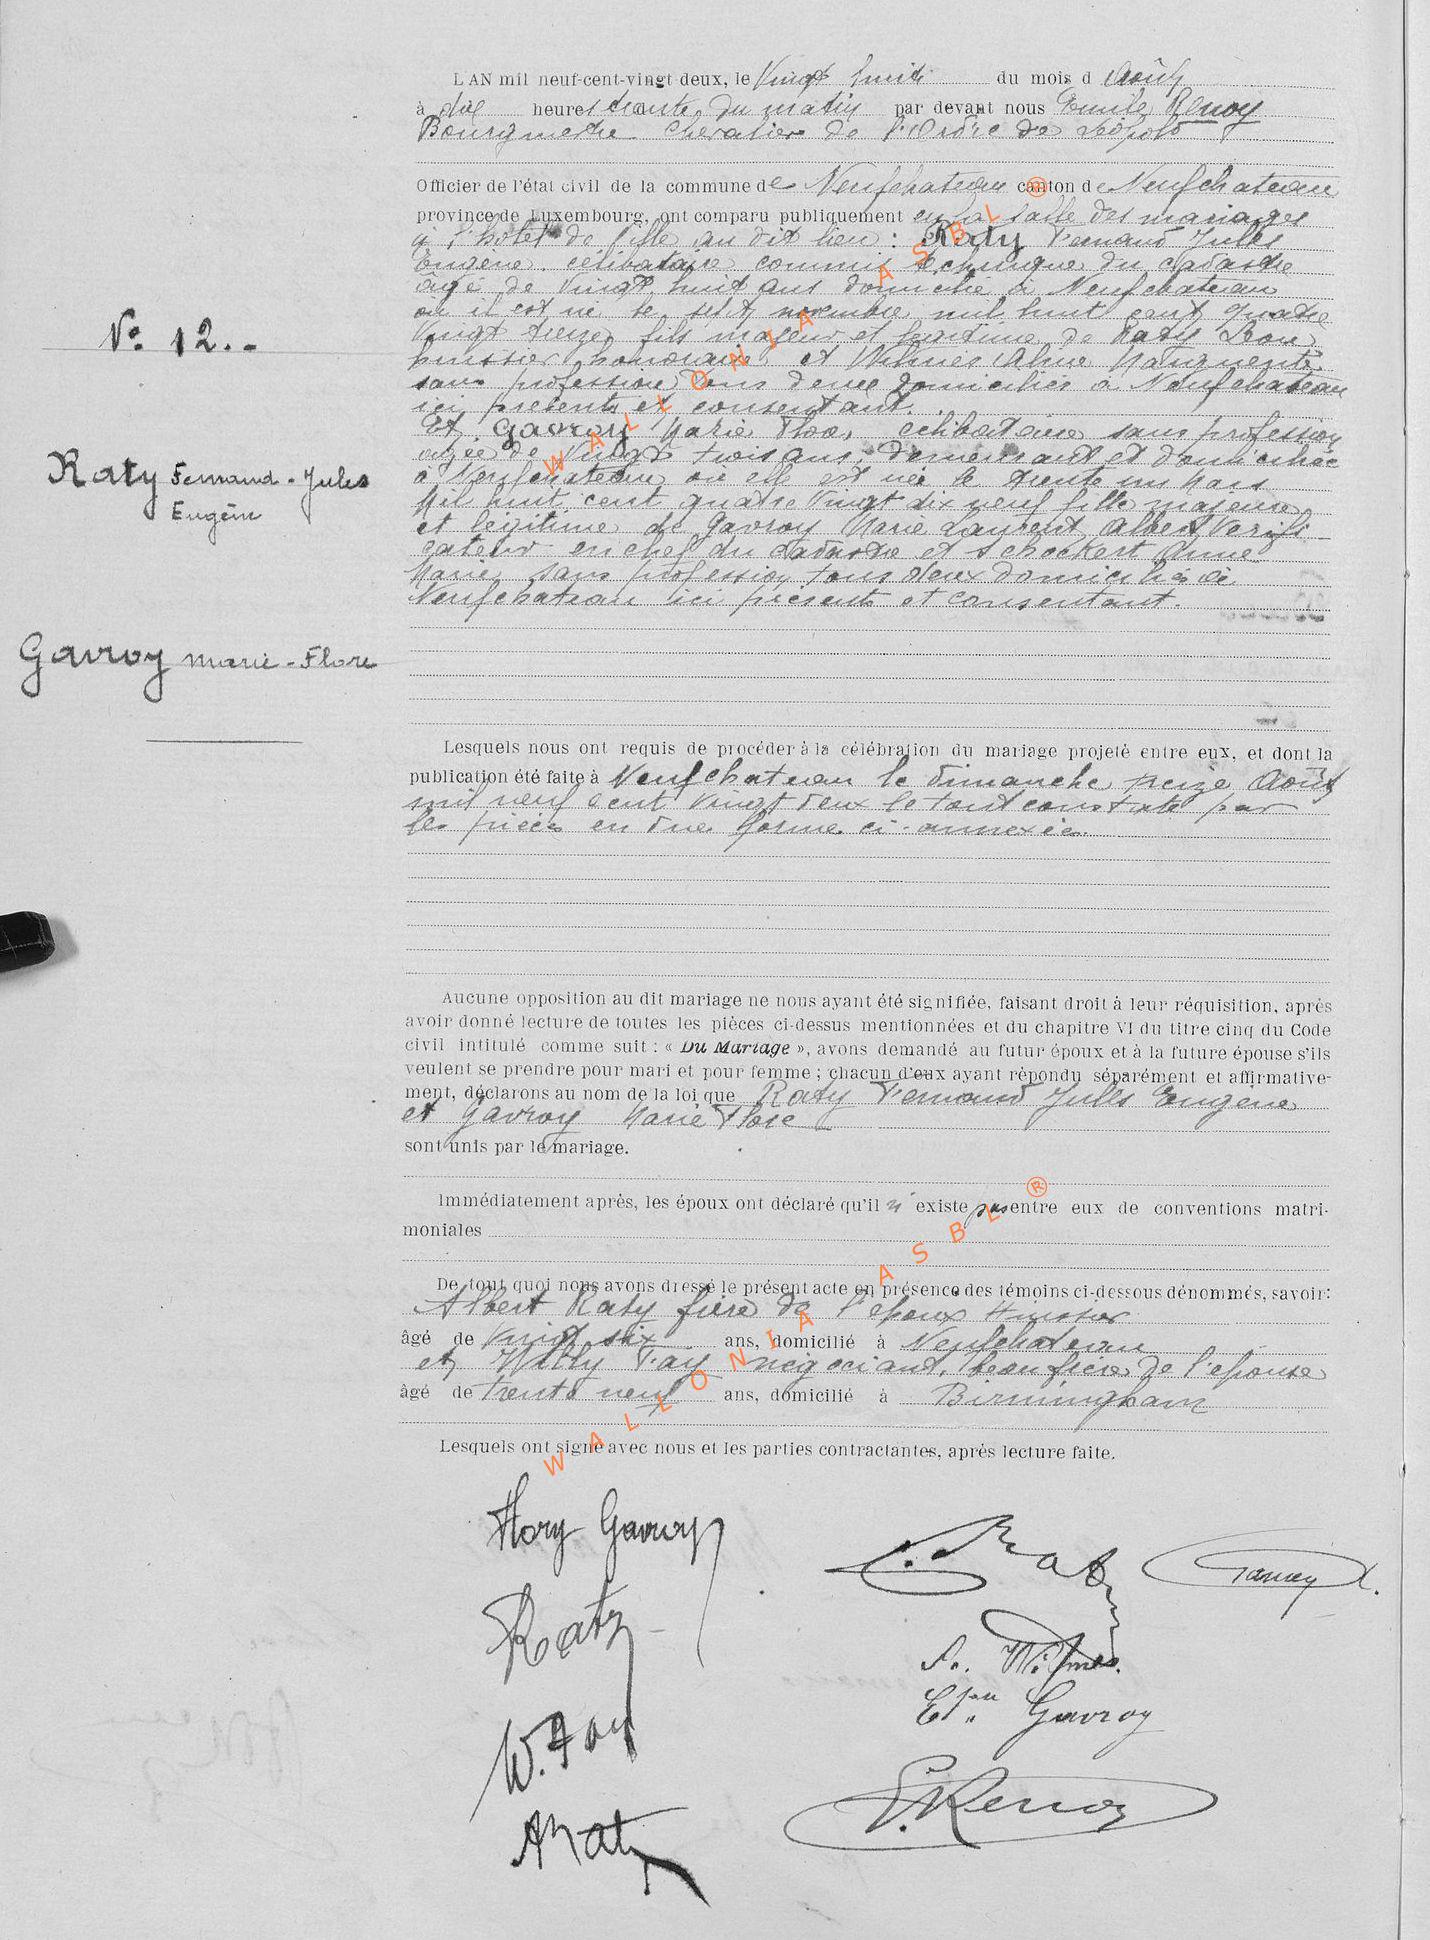 L'AN mil neuf-cent-vingt deux, le Vingt huit du mois d Août
à dix heures trente du matin par devant nous Emile Renoy
Bourgmestre Chevalier de l'Ordre de Léopold
Officier de l'état civil de la commune de Neufchateau canton de Neufchateau
province de Luxembourg, ont comparu publiquement en la salle des mariages
à l'hôtel de Ville au dit lieu : Raty Fernand Jules
Eugène célibataire commis technique du cadastre
âgé de Vingt huit ans domicilié à Neufchateau
où il est né le sept novembre mil huit cent quatre
Vingt treize, fils majeur et légitime de Raty Léon
huissier honoraire et Wilmes Aline Marguerite
sans profession tous deux domiciliés à Neufchateau
ici présents et consentant.
Et Gavroy Marie Flore, célibataire sans profession
agée de Vingt trois ans, demeurant et domiciliée
à Neufchateau où elle est née le trente un Mars
Mil huit cent quatre Vingt dix neuf fille majeure
et légitime de Gavroy Marie Laurent Albert Verifi
cateur en chef du cadastre et Scheckert Anne
Marie sans profession tous deux domiciliés à
Neufchateau ici présents et consentant.
N° 12.-
Raty Fernand-Jules
Eugène
Gavroy Marie-Flore
Lesquels nous ont requis de procéder à la célébration du mariage projeté entre eux, et dont la
publication été faite à Neufchateau le dimanche treize Août
mil neuf cent Vingt deux le tout constaté par
les pièces en due forme ci-annexées.
Aucune opposition au dit mariage ne nous ayant été signifiée, faisant droit à leur réquisition, après
avoir donné lecture de toutes les pièces ci-dessus mentionnées et du chapitre VI du titre cinq du Code
civil intitulé comme suit : « Du Mariage », avons demandé au futur époux et à la future épouse s'ils
veulent se prendre pour mari et pour femme ; chacun d'eux ayant répondu séparément et affirmative-
ment, déclarons au nom de la loi que Raty Fernand Jules Eugène
et Gavroy Marie Flore
sont unis par le mariage.
Immédiatement après, les époux ont déclaré qu'il n' existe pas entre eux de conventions matri-
moniales
De tout quoi nous avons dressé le présent acte en présence des témoins ci-dessous dénommés, savoir:
Albert Raty frère de l'époux Huissier
âgé de Vingt six ans, domicilié à Neufchateau
et Willy Fay négociant, beau frère de l'épouse
âgé de trente neuf ans, domicilié à Birmingham
Lesquels ont signé avec nous et les parties contractantes, après lecture faite.
Flory Gavroy
Raty
W. Fay
A Raty
L. Raty
Gavroy
A. Wilmes
Gavroy
E. Renoy
WALLONIA ASBL ®
WALLONIA ASBL ®